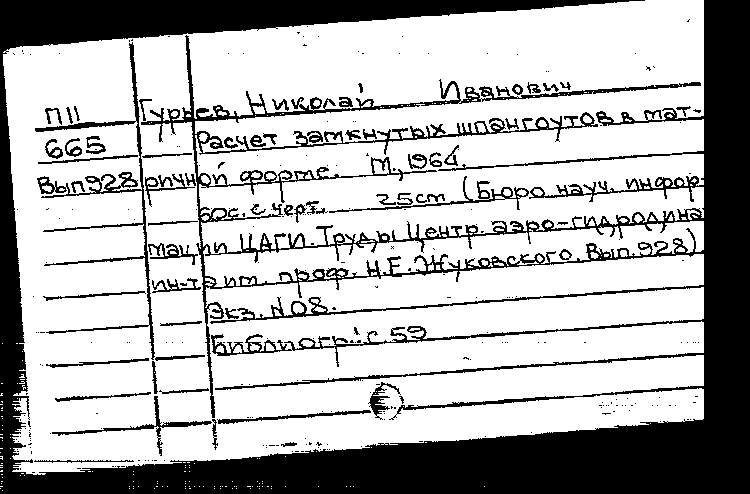 П11 Гурьев, Николай Иванович
665 Расчет замкнутых шпангоутов в мат-
Вып928 ричной форме. М., 1964.
60с. с черт. 25см (Бюро науч. инфор-
мации ЦАГИ. Труды Центр. аэро-гидродина
ин-та им. проф. Н.Е. Жуковского. Вып.928)
Экз. №08.
Библиогр.: с 59